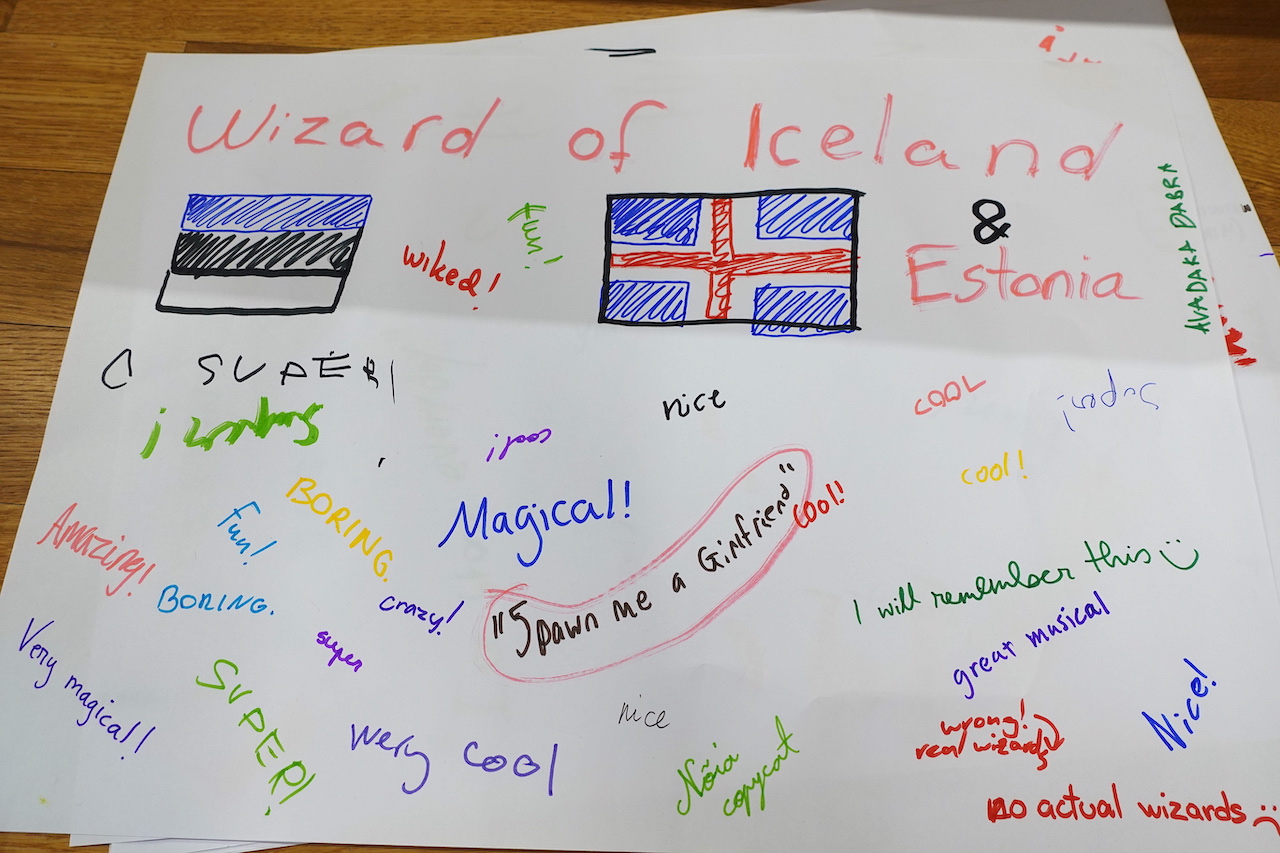 Wizard of Iceland
&
Estonia
AVADAKA DABRA
wiked!
fun!
SUPER!
nice
cool
super!
super!
cool!
cool!
BORING.
Magical!
"Spawn me a Girlfriend"
cool!
Amazing!
Fun!
BORING.
crazy!
I will remember this
great musical
super
Very magical!!
SUPER!
nice
Very cool
Nõia
copycat
wrong!
real wizards
Nice!
no actual wizards